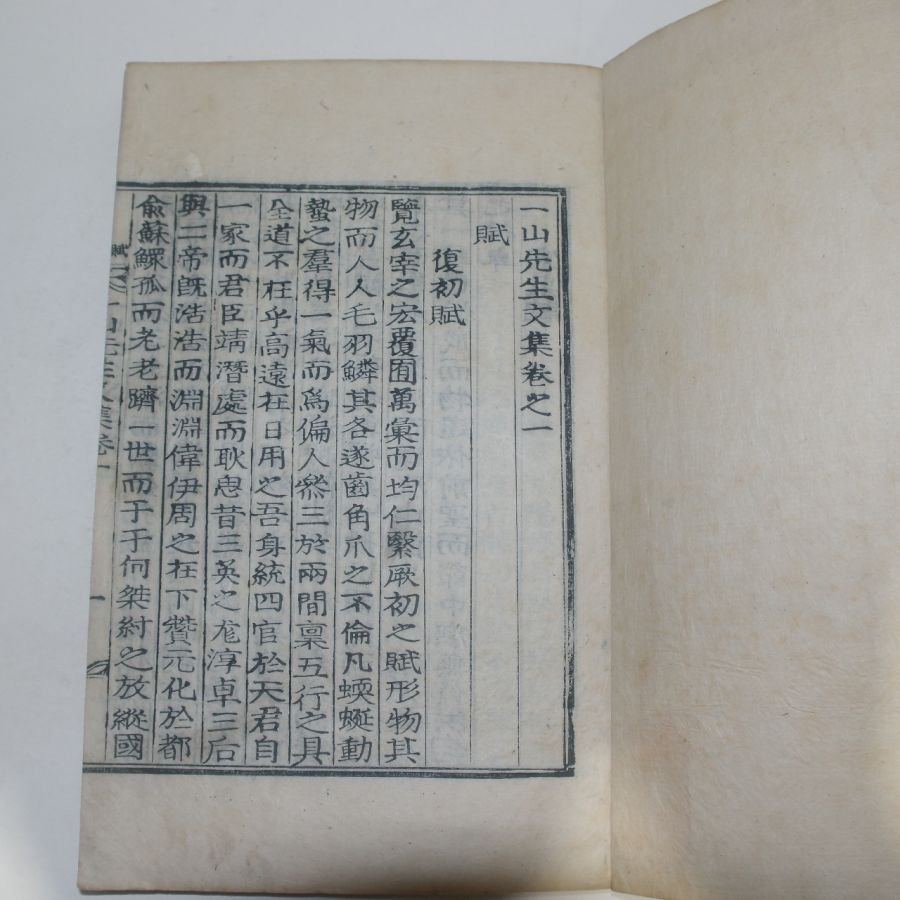 一山先生文集卷之一
賦
復初賦
覽玄宰之宏覆囿萬彙而均仁繄厥初之賦形物其
物而人人毛羽鱗其各遂齒角爪之不倫凡蝡蜒動
蟄之羣得一氣而爲偏人叅三於兩間稟五行之具
全道不在乎高遠在日用之吾身統四官於天君自
一家而君臣靖潛處而耿思昔三英之尨淳卓三后
與二帝旣浩浩而淵淵偉伊周之在下贊元化於都
兪蘇鰥孤而老老躋一世而于于何桀紂之放縱國